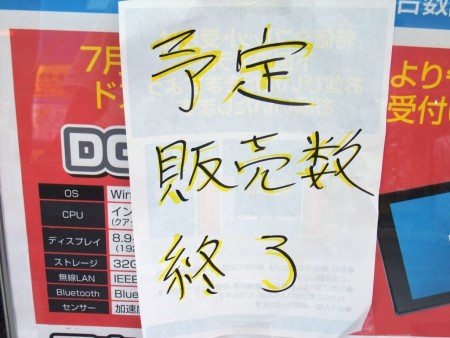 台数
7月
より
ド
受付
予定
販売数
終了
DG
OS Win
CPU イン
(クア
ディスプレイ 8.9
(192
ストレージ 32G
無線LAN IEEE
Bluetooth Blue
センサー 加速度